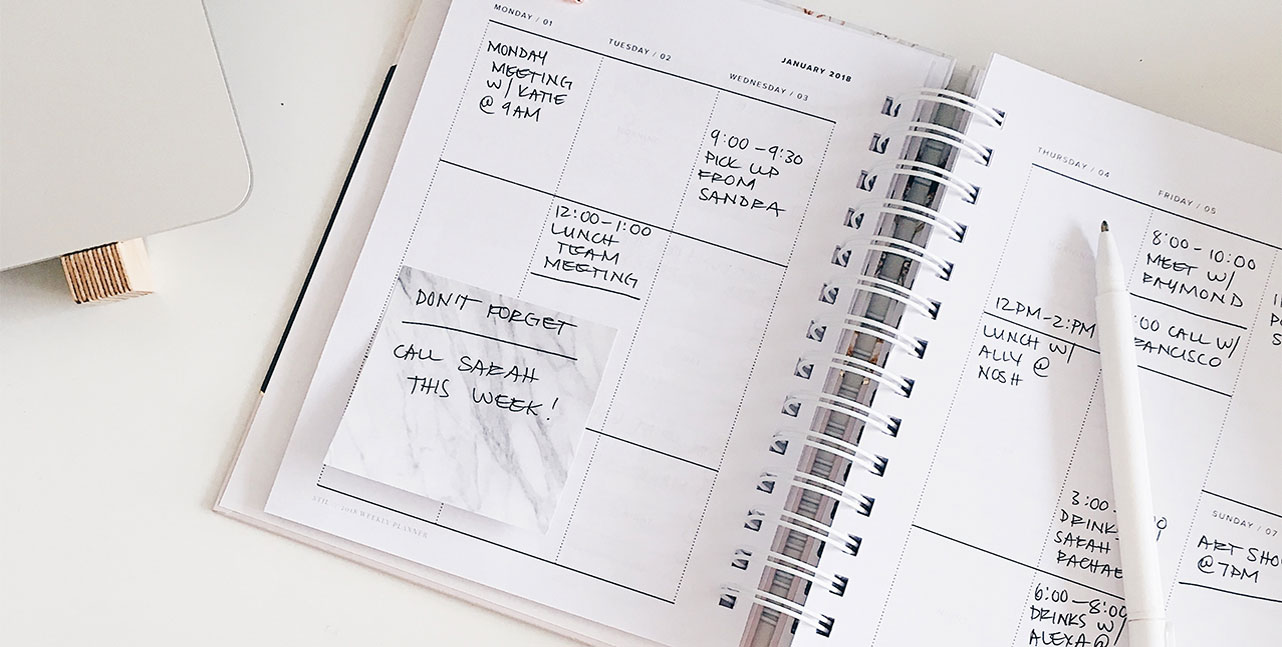 MONDAY / 01
MONDAY
MEETING
W/ KATIE
@ 9AM
TUESDAY / 02
12:00-1:00
LUNCH
TEAM
MEETING
JANUARY 2018
WEDNESDAY / 03
9:00-9:30
PICK UP
FROM
SANDRA
DON'T FORGET
CALL SARAH
THIS WEEK!
2018 WEEKLY PLANNER
THURSDAY / 04
12PM-2:PM
LUNCH W/
ALLY @
NOSH
FRIDAY / 05
8:00-10:00
MEET W/
RAYMOND
:00 CALL W/
3:00
SARAH
6:00-8:00
DRINKS W/
ALEXA @
SUNDAY / 07
ART
@ 7PM